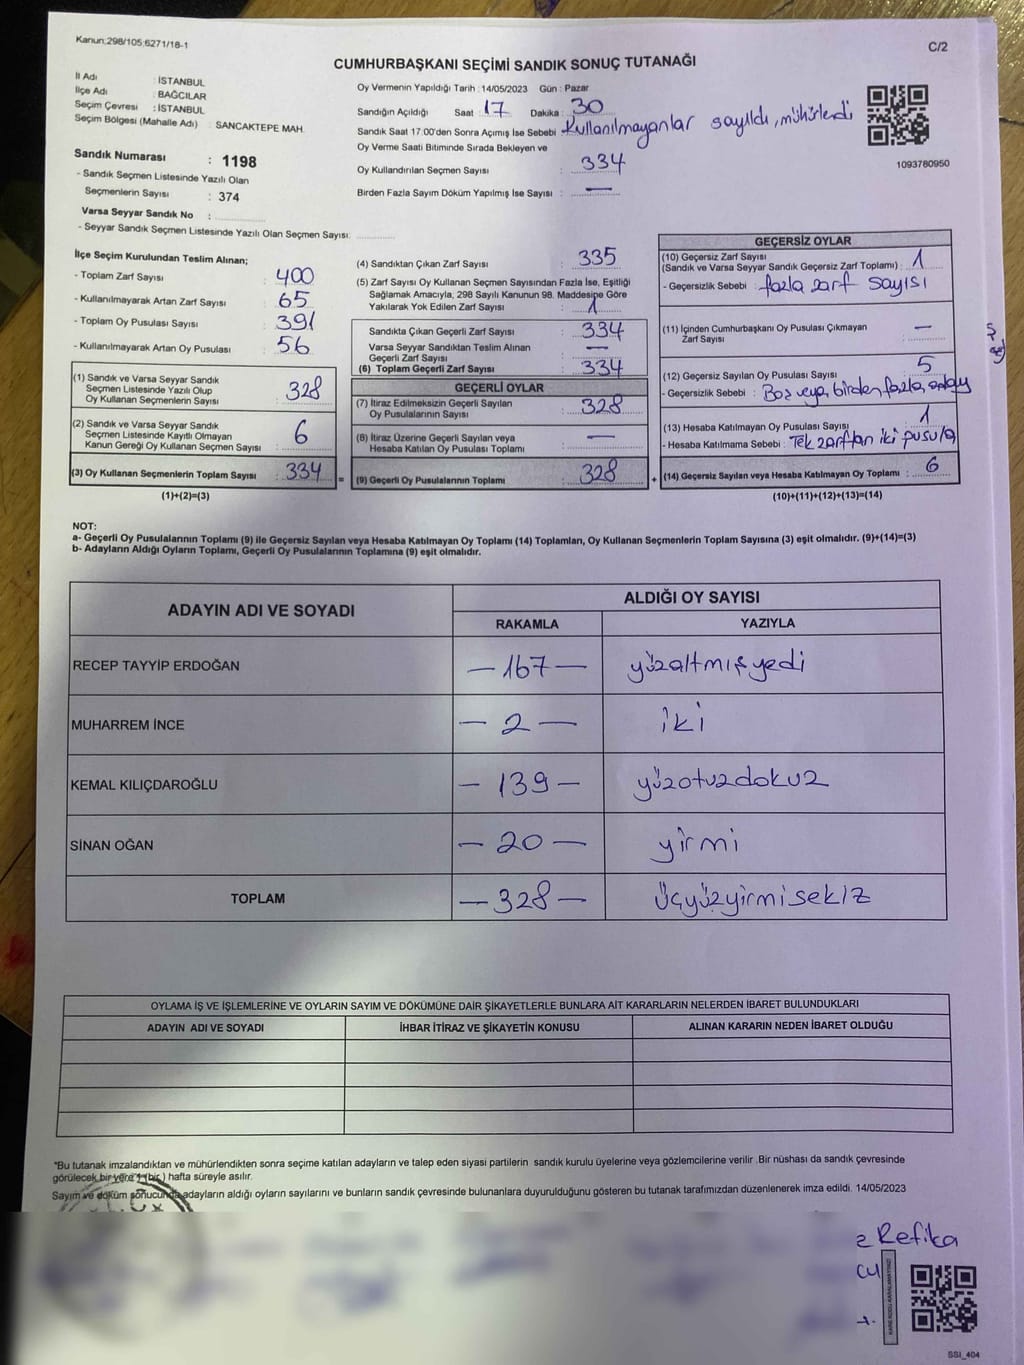 Kanun:298/105;6271/18-1
C/2
CUMHURBAŞKANI SEÇİMİ SANDIK SONUÇ TUTANAĞI
İl Adı : İSTANBUL
İlçe Adı : BAĞCILAR
Seçim Çevresi : İSTANBUL
Seçim Bölgesi (Mahalle Adı) : SANCAKTEPE MAH.
Sandık Numarası : 1198
- Sandık Seçmen Listesinde Yazılı Olan
Seçmenlerin Sayısı : 374
Varsa Seyyar Sandık No :
- Seyyar Sandık Seçmen Listesinde Yazılı Olan Seçmen Sayısı:
Oy Vermenin Yapıldığı Tarih : 14/05/2023 Gün : Pazar
Sandığın Açıldığı Saat : 17 Dakika : 30
Sandık Saat 17.00'den Sonra Açımış İse Sebebi : Kullanılmayanlar sayıldı, mühürlendi
Oy Verme Saati Bitiminde Sırada Bekleyen ve
Oy Kullandırılan Seçmen Sayısı : 334
Birden Fazla Sayım Döküm Yapılmış İse Sayısı : —
1093780950
İlçe Seçim Kurulundan Teslim Alınan;
- Toplam Zarf Sayısı : 400
- Kullanılmayarak Artan Zarf Sayısı : 65
- Toplam Oy Pusulası Sayısı : 391
- Kullanılmayarak Artan Oy Pusulası : 56
(1) Sandık ve Varsa Seyyar Sandık
Seçmen Listesinde Yazılı Olup
Oy Kullanan Seçmenlerin Sayısı : 328
(2) Sandık ve Varsa Seyyar Sandık
Seçmen Listesinde Kayıtlı Olmayan
Kanun Gereği Oy Kullanan Seçmen Sayısı : 6
(3) Oy Kullanan Seçmenlerin Toplam Sayısı : 334
(1)+(2)=(3)
(4) Sandıktan Çıkan Zarf Sayısı : 335
(5) Zarf Sayısı Oy Kullanan Seçmen Sayısından Fazla İse, Eşitliği
Sağlamak Amacıyla, 298 Sayılı Kanunun 98. Maddesine Göre
Yakılarak Yok Edilen Zarf Sayısı : 1
Sandıkta Çıkan Geçerli Zarf Sayısı : 334
Varsa Seyyar Sandıktan Teslim Alınan
Geçerli Zarf Sayısı : —
(6) Toplam Geçerli Zarf Sayısı : 334
GEÇERLİ OYLAR
(7) İtiraz Edilmeksizin Geçerli Sayılan
Oy Pusulalarının Sayısı : 328
(8) İtiraz Üzerine Geçerli Sayılan veya
Hesaba Katılan Oy Pusulası Toplamı : —
= (9) Geçerli Oy Pusulalarının Toplamı : 328
GEÇERSİZ OYLAR
(10) Geçersiz Zarf Sayısı
(Sandık ve Varsa Seyyar Sandık Geçersiz Zarf Toplamı) : 1
- Geçersizlik Sebebi : fazla zarf sayısı
(11) İçinden Cumhurbaşkanı Oy Pusulası Çıkmayan
Zarf Sayısı : —
(12) Geçersiz Sayılan Oy Pusulası Sayısı : 5
- Geçersizlik Sebebi : Boş veya birden fazla onay
(13) Hesaba Katılmayan Oy Pusulası Sayısı : 1
- Hesaba Katılmama Sebebi : Tek zarftan iki pusula
+ (14) Geçersiz Sayılan veya Hesaba Katılmayan Oy Toplamı : 6
(10)+(11)+(12)+(13)=(14)
NOT:
a- Geçerli Oy Pusulalarının Toplamı (9) ile Geçersiz Sayılan veya Hesaba Katılmayan Oy Toplamı (14) Toplamları, Oy Kullanan Seçmenlerin Toplam Sayısına (3) eşit olmalıdır. (9)+(14)=(3)
b- Adayların Aldığı Oyların Toplamı, Geçerli Oy Pusulalarının Toplamına (9) eşit olmalıdır.
ADAYIN ADI VE SOYADI
ALDIĞI OY SAYISI
RAKAMLA YAZIYLA
RECEP TAYYİP ERDOĞAN — 167 — yüzaltmışyedi
MUHARREM İNCE — 2 — iki
KEMAL KILIÇDAROĞLU — 139 — yüzotuzdokuz
SİNAN OĞAN — 20 — yirmi
TOPLAM — 328 — üçyüzyirmisekiz
OYLAMA İŞ VE İŞLEMLERİNE VE OYLARIN SAYIM VE DÖKÜMÜNE DAİR ŞİKAYETLERLE BUNLARA AİT KARARLARIN NELERDEN İBARET BULUNDUKLARI
ADAYIN ADI VE SOYADI İHBAR İTİRAZ VE ŞİKAYETİN KONUSU ALINAN KARARIN NEDEN İBARET OLDUĞU
*Bu tutanak imzalandıktan ve mühürlendikten sonra seçime katılan adayların ve talep eden siyasi partilerin sandık kurulu üyelerine veya gözlemcilerine verilir .Bir nüshası da sandık çevresinde
görülecek bir yere 1 (bir ) hafta süreyle asılır.
Sayım ve döküm sonucunda adayların aldığı oyların sayılarını ve bunların sandık çevresinde bulunanlara duyurulduğunu gösteren bu tutanak tarafımızdan düzenlenerek imza edildi. 14/05/2023
Refika
KARE KODU KARALAMAYINIZ!
SSI_404